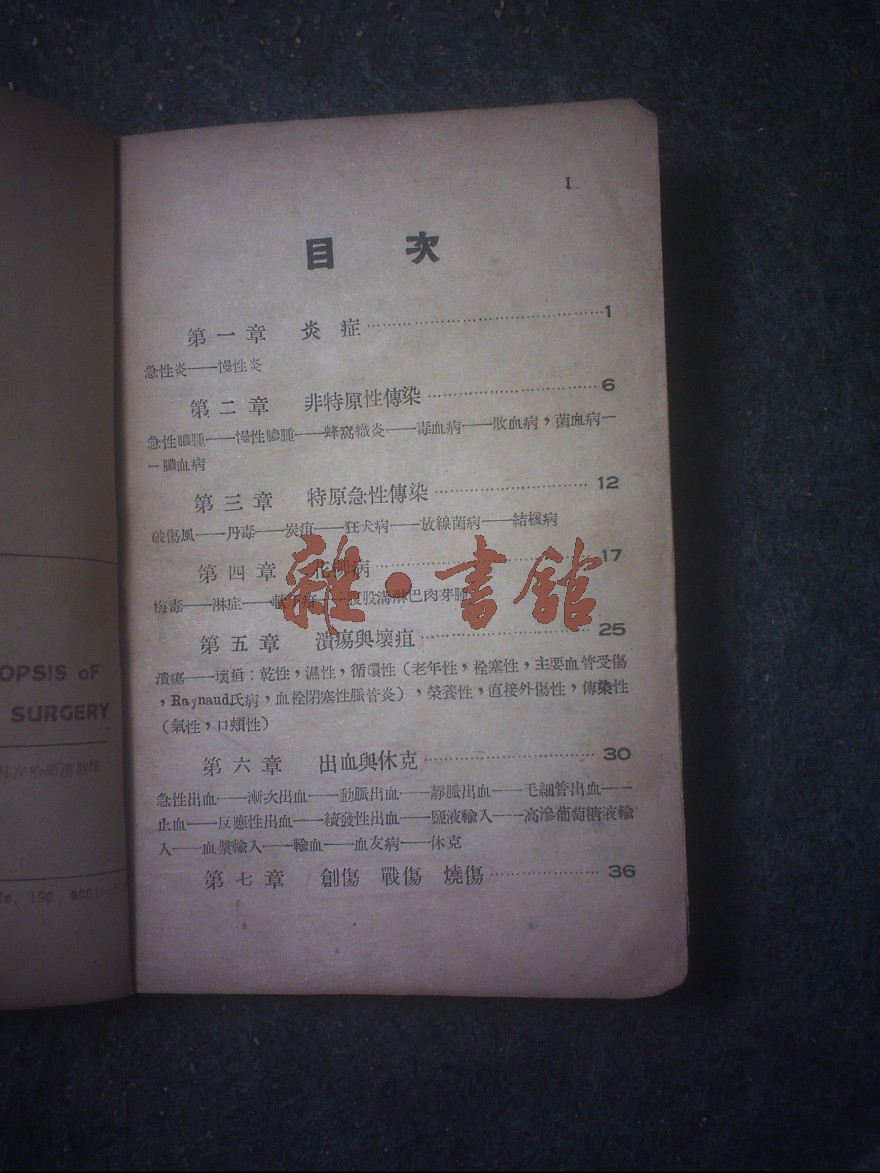 1
目 次
第一章 炎症 1
急性炎——慢性炎
第二章 非特原性傳染 6
急性膿腫——慢性膿腫——蜂窩織炎——毒血病——敗血病，菌血病—
—膿血病
第三章 特原急性傳染 12
破傷風——丹毒——炭疽——狂犬病——放線菌病——結核病
第四章 花柳病 17
梅毒——淋症——軟下疳——腹股溝淋巴肉芽腫
第五章 潰瘍與壞疽 25
潰瘍——壞疽：乾性，濕性，循環性（老年性，栓塞性，主要血管受傷
，Raynaud氏病，血栓閉塞性脈管炎），榮養性，直接外傷性，傳染性
（氣性，口頰性）
第六章 出血與休克 30
急性出血——漸次出血——動脈出血——靜脈出血——毛細管出血——
止血——反應性出血——續發性出血——鹽液輸入——高滲葡萄糖液輸
入——血漿輸入——輸血——血友病——休克
第七章 創傷 戰傷 燒傷 36
OPSIS oF
SURGERY
雜·書館